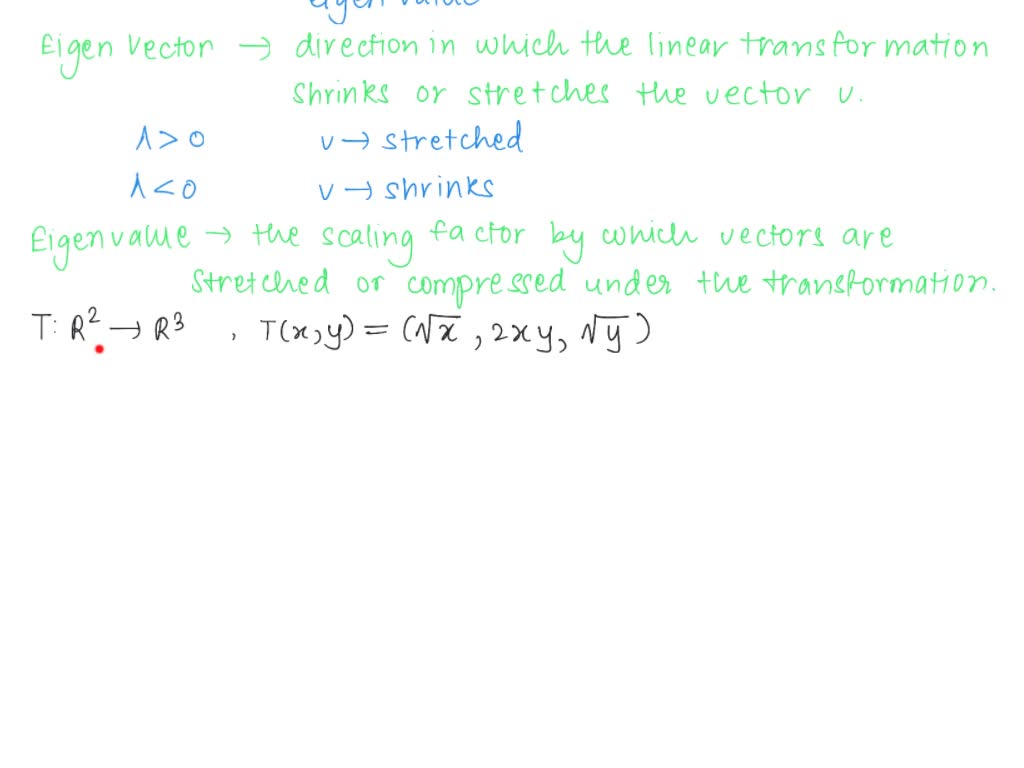 eigen value
Eigen Vector → direction in which the linear transformation
shrinks or stretches the vector v.
λ > 0 v → stretched
λ < 0 v → shrinks
Eigenvalue → the scaling factor by which vectors are
stretched or compressed under the transformation.
T: R² → R³ , T(x,y) = (√x , 2xy, √y )